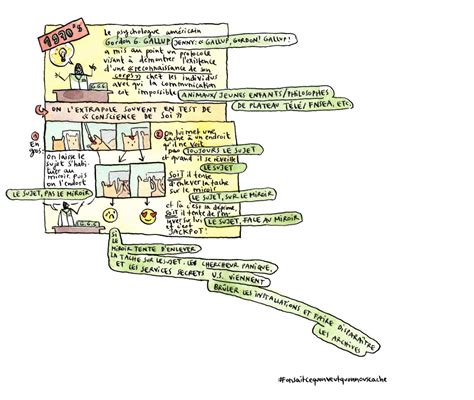 1970's
Le psychologue américain
Gordon G. GALLUP
JENNY: « GALLUP, GORDON! GALLUP!
a mis au point un protocole
visant à démontrer l'existence
d'une « reconnaissance de son
corps » chez les individus
avec qui la communication
est impossible
ANIMAUX/ JEUNES ENFANTS/ PHILOSOPHES
DE PLATEAU TÉLÉ/ FNSEA, ETC.
G.G.G.
ON L'EXTRAPOLE SOUVENT EN TEST DE
« CONSCIENCE DE SOI »
En
gros:
on laisse le
sujet s'habi-
tuer au
miroir puis
on l'endort
LE SUJET, PAS LE MIROIR
G.G.G.
On lui met une
tache à un endroit
qu'il ne voit
pas
TOUJOURS LE SUJET
et quand il se réveille
LE SUJET
SOIT il tente
d'enlever la tache
sur le miroir
LE SUJET, SUR LE MIROIR
et là c'est la déprime,
SOIT il tente de l'en-
lever sur lui
et c'est
JACKPOT!
LE SUJET, FACE AU MIROIR
SI
LE
MIROIR TENTE D'ENLEVER
LA TACHE SUR LE SUJET : LES CHERCHEUR PANIQUE,
ET LES SERVICES SECRETS U.S. VIENNENT
BRÛLER LES INSTALLATIONS ET FAIRE DISPARAÎTRE
LES ARCHIVES
#onsaitcequonveutquonnouscache